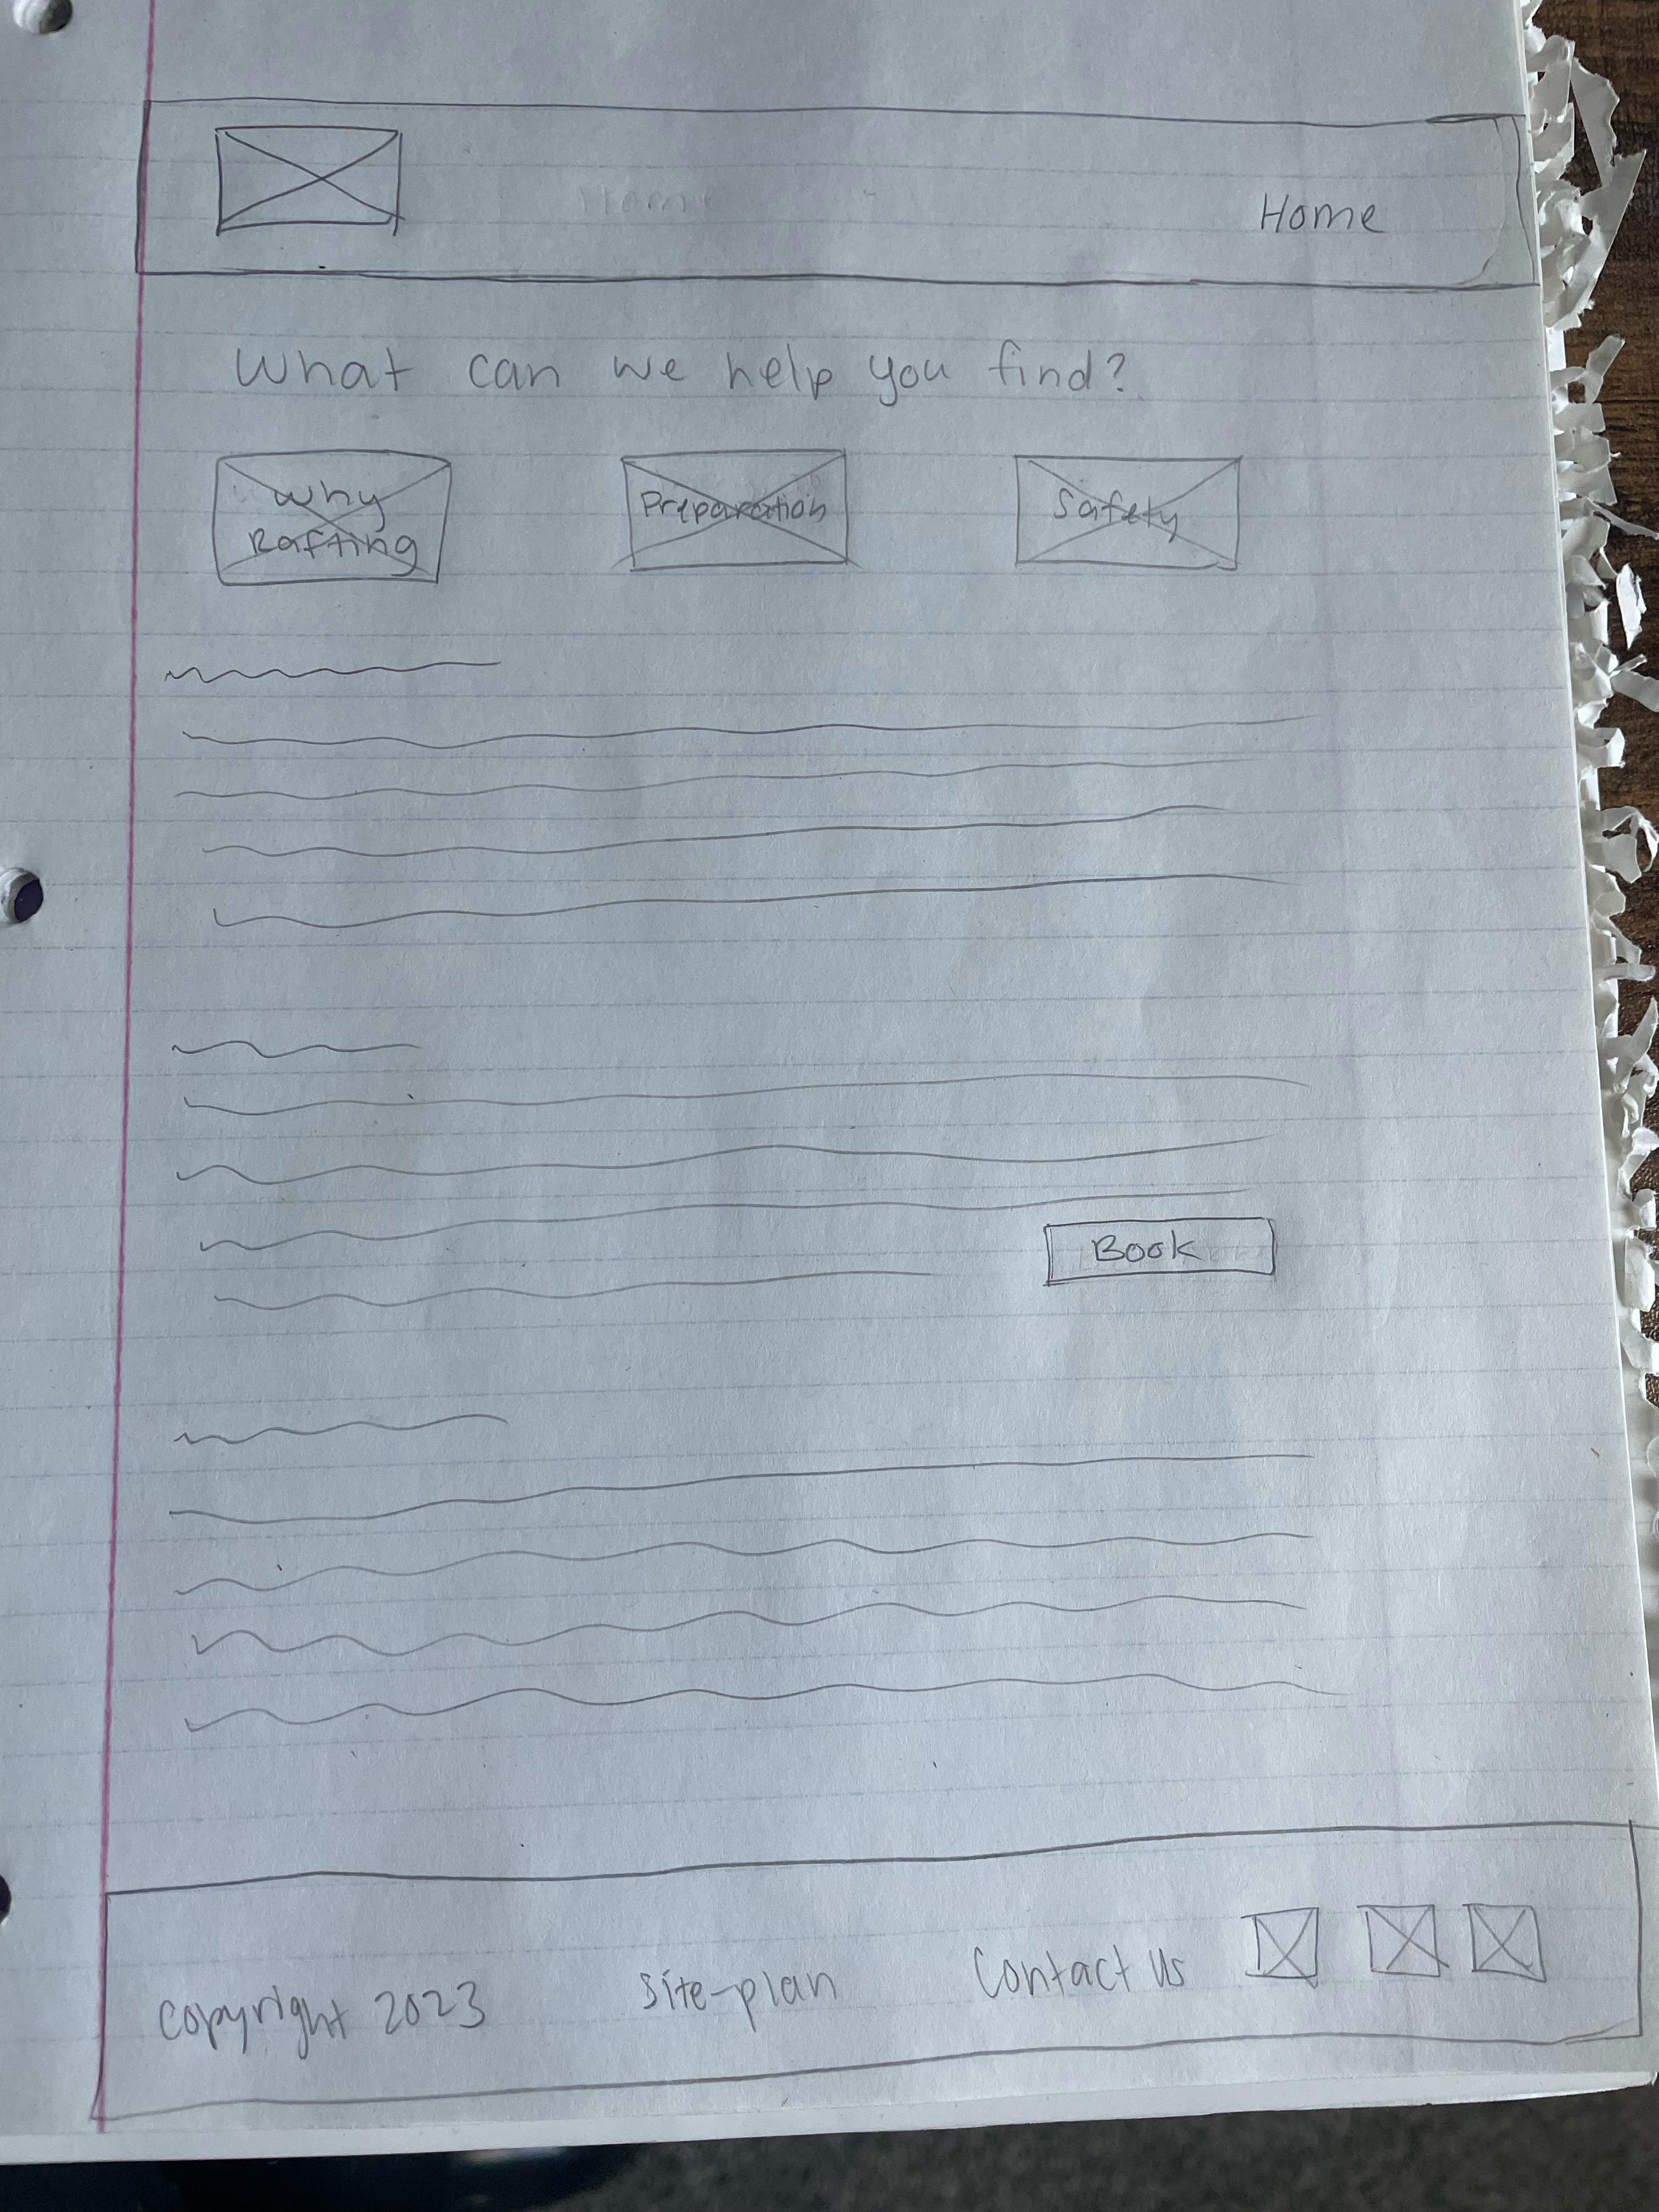 Home
What can we help you find?
Why
Rafting
Preparation
Safety
Book
Copyright 2023
site-plan
Contact Us